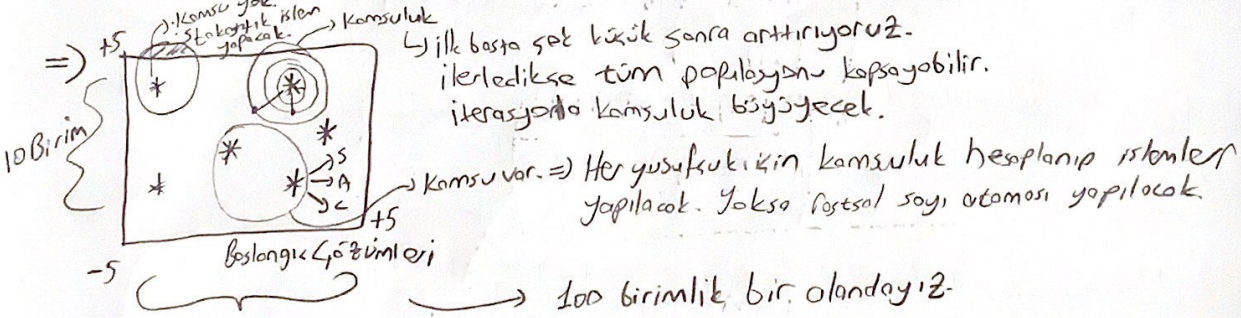 Komsu yok.
stokastik islem
yapacak.
Komsuluk
=> +5
↳ ilk basta çok küçük sonra arttırıyoruz.
ilerledikse tüm popülasyonu kapsayabilir.
iterasyonla komsuluk büyüyecek.
10 Birim
S
A
C
Komsu var. => Her yusufçuk için komsuluk hesaplanıp islemler
yapılacak. Yoksa rastsal sayı ataması yapılacak.
+5
-5
Baslangıç Çözümleri
100 birimlik bir alandayız.